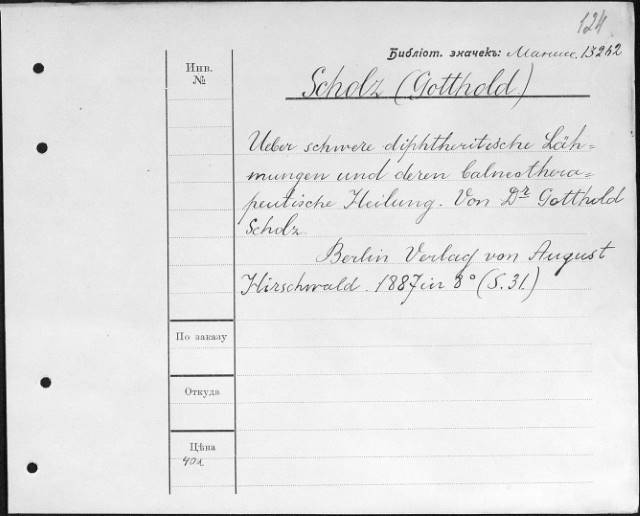 124
Библіот. значекъ: 13242
Инв.
№
Scholz (Gotthold)
Ueber schwere diphtheritische Läh=
mungen und deren balneothera=
peutische Heilung. Von Dr Gotthold
Scholz
Berlin Verlag von August
Hirschwald. 1887 in 8° (S. 31.)
По заказу
Откуда
Цѣна